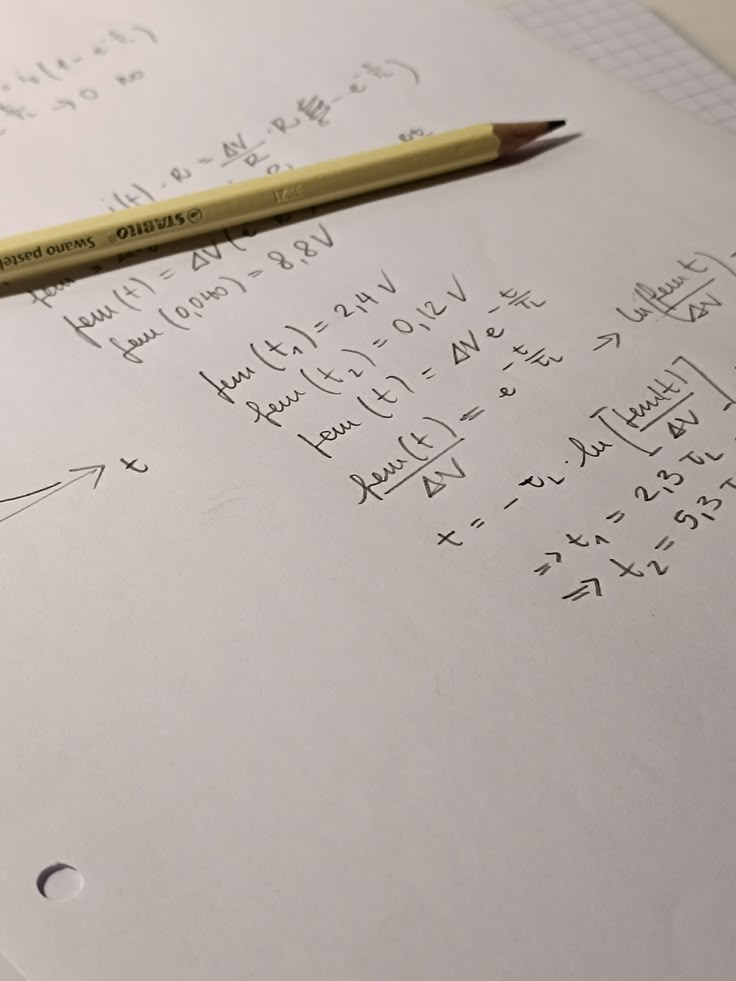 i(t) · R = ΔV/R · R ( - e^(-t/τL))
STABILO® Swano pastel
fem(t) = ΔV(e
fem(0,040) = 8,8V
fem(t₁) = 2,4 V
fem(t₂) = 0,12 V
fem(t) = ΔV e^(-t/τL)
fem(t)/ΔV = e^(-t/τL) → ln(fem t)/ΔV
t
t = -τL · ln[fem(t)/ΔV]
=> t₁ = 2,3 τL
=> t₂ = 5,3 τ